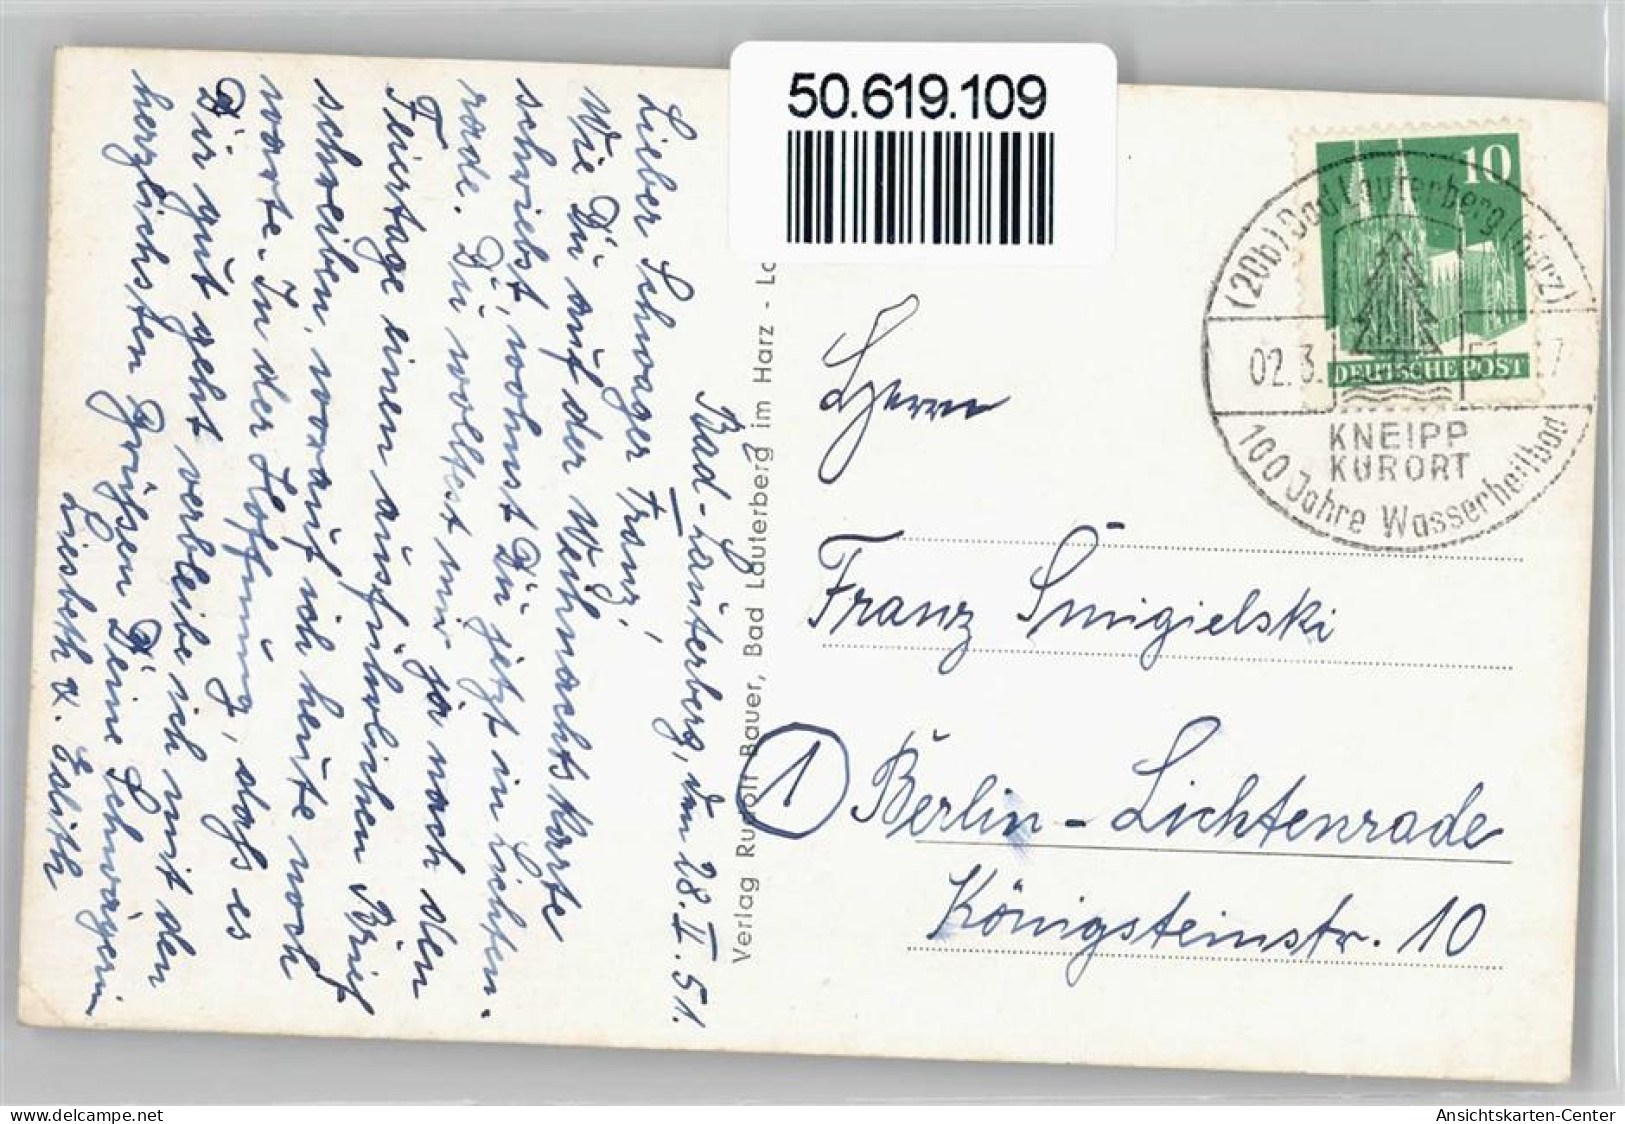 50.619.109
Bad-Lauterberg, den 28.II.51.
Lieber Schwager Franz!
Wie Du auf der Weihnachtskarte
schriebst, wohnst Du jetzt in Lichten-
rade. Du wolltest mir ja nach den
Feiertage einen ausführlichen Brief
schreiben, worauf ich heute noch
warte. In der Hoffnung, dass es
Dir gut geht verbleibe ich mit den
herzlichsten Grüßen Deine Schwägerin
Liesbeth u. Edith
Verlag Rudolf Bauer, Bad Lauterberg im Harz - Lo
10
DEUTSCHE POST
(20b) Bad Lauterberg (Harz)
02.3.
KNEIPP
KURORT
100 Jahre Wasserheilbad
Herrn
Franz Smigielski
1
Berlin-Lichtenrade
Königsteinstr. 10
Ansichtskarten-Center